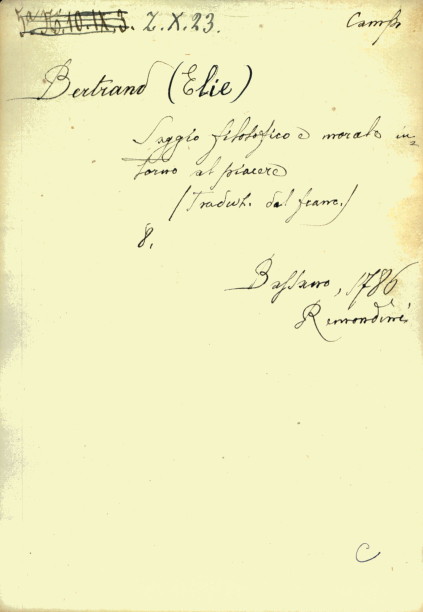 Z.X.23.
Bertrand (Elie)
Saggio filosofico e morale in=
torno al piacere
(Tradut. dal franc.)
8.
Bassano, 1786
Remondini
C